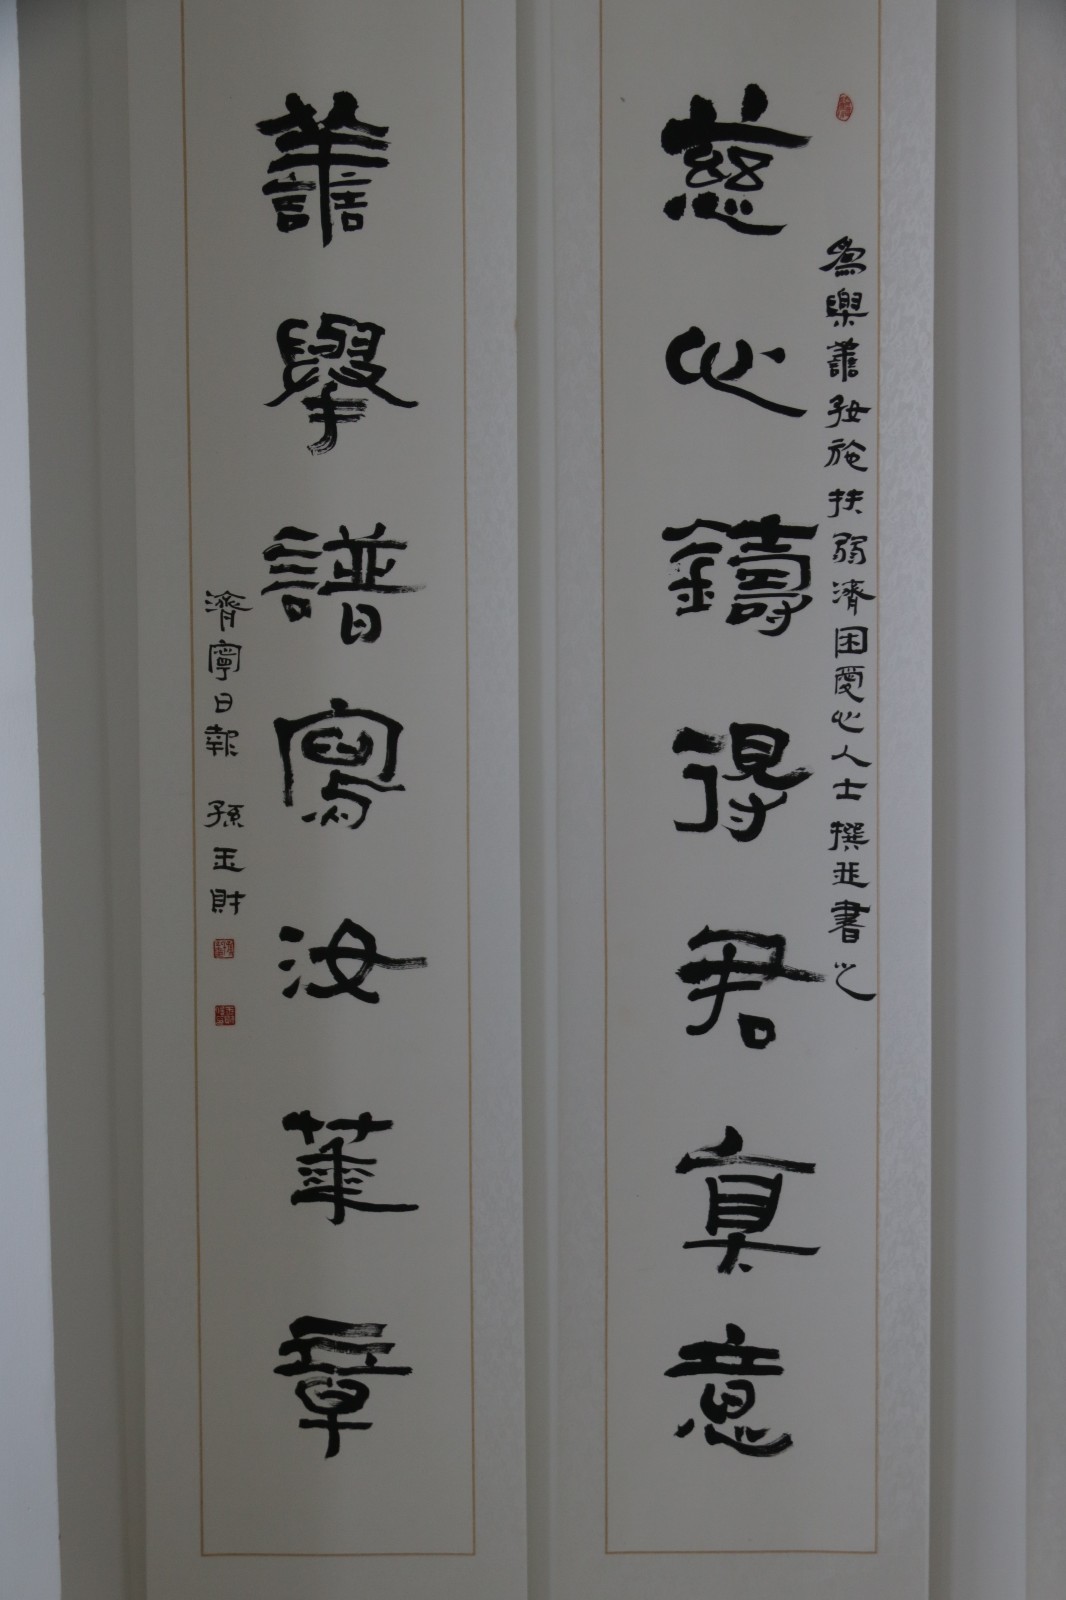 為樂善好施扶弱濟困愛心人士撰並書之
慈心鑄得君真意
善舉譜寫汝華章
濟寧日報 孫玉財